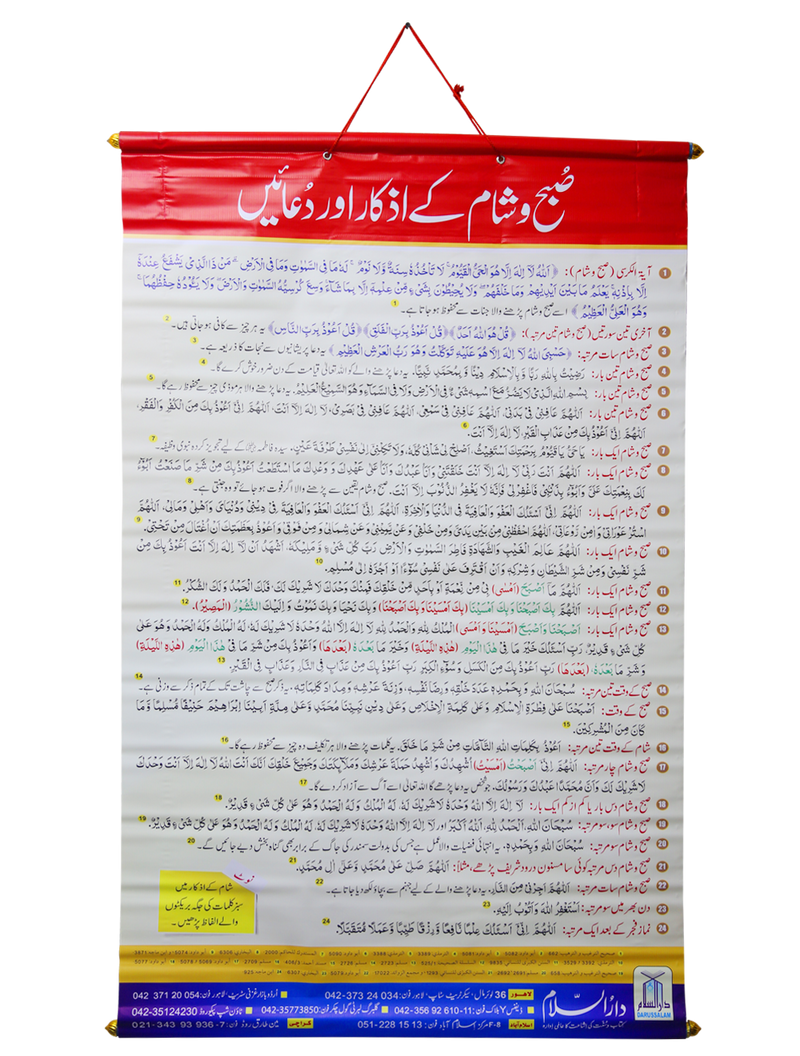 صُبح و شام کے اذکار اور دُعائیں
1 آیۃ الکرسی (صبح و شام): ﴿اَللّٰهُ لَاۤ اِلٰهَ اِلَّا هُوَ الْحَیُّ الْقَیُّوْمُ لَا تَاْخُذُهٗ سِنَةٌ وَّلَا نَوْمٌ لَهٗ مَا فِی السَّمٰوٰتِ وَمَا فِی الْاَرْضِ مَنْ ذَا الَّذِیْ یَشْفَعُ عِنْدَهٗۤ
اِلَّا بِاِذْنِهٖ یَعْلَمُ مَا بَیْنَ اَیْدِیْهِمْ وَمَا خَلْفَهُمْ وَلَا یُحِیْطُوْنَ بِشَیْءٍ مِّنْ عِلْمِهٖۤ اِلَّا بِمَا شَآءَ وَسِعَ كُرْسِیُّهُ السَّمٰوٰتِ وَالْاَرْضَ وَلَا یَـُٔوْدُهٗ حِفْظُهُمَا
وَهُوَ الْعَلِیُّ الْعَظِیْمُ﴾ اسے صبح و شام پڑھنے والا جنات سے محفوظ ہو جاتا ہے۔ 1
2 آخری تین سورتیں (صبح و شام تین مرتبہ): ﴿قُلْ هُوَ اللّٰهُ اَحَدٌ﴾ ﴿قُلْ اَعُوْذُ بِرَبِّ الْفَلَقِ﴾ ﴿قُلْ اَعُوْذُ بِرَبِّ النَّاسِ﴾ یہ ہر چیز سے کافی ہو جاتی ہیں۔ 2
3 صبح و شام سات مرتبہ: ﴿حَسْبِیَ اللّٰهُ لَاۤ اِلٰهَ اِلَّا هُوَ عَلَیْهِ تَوَكَّلْتُ وَهُوَ رَبُّ الْعَرْشِ الْعَظِیْمِ﴾ یہ دعا پریشانیوں سے نجات کا ذریعہ ہے۔ 3
4 صبح و شام تین بار: رَضِیْتُ بِاللّٰهِ رَبًّا وَّبِالْاِسْلَامِ دِیْنًا وَّبِمُحَمَّدٍ نَّبِیًّا۔ یہ دعا پڑھنے والے کو اللہ تعالیٰ قیامت کے دن ضرور خوش کرے گا۔ 4
5 صبح و شام تین بار: بِسْمِ اللّٰهِ الَّذِیْ لَا یَضُرُّ مَعَ اسْمِهٖ شَیْءٌ فِی الْاَرْضِ وَلَا فِی السَّمَآءِ وَهُوَ السَّمِیْعُ الْعَلِیْمُ۔ یہ دعا پڑھنے والا ہر موذی چیز سے محفوظ رہے گا۔ 5
6 صبح و شام تین بار: اَللّٰهُمَّ عَافِنِیْ فِیْ بَدَنِیْ، اَللّٰهُمَّ عَافِنِیْ فِیْ سَمْعِیْ، اَللّٰهُمَّ عَافِنِیْ فِیْ بَصَرِیْ، لَاۤ اِلٰهَ اِلَّاۤ اَنْتَ، اَللّٰهُمَّ اِنِّیْۤ اَعُوْذُ بِكَ مِنَ الْكُفْرِ وَالْفَقْرِ،
اَللّٰهُمَّ اِنِّیْۤ اَعُوْذُ بِكَ مِنْ عَذَابِ الْقَبْرِ، لَاۤ اِلٰهَ اِلَّاۤ اَنْتَ۔ 6
7 صبح و شام ایک بار: یَا حَیُّ یَا قَیُّوْمُ بِرَحْمَتِكَ اَسْتَغِیْثُ، اَصْلِحْ لِیْ شَاْنِیْ كُلَّهٗ، وَلَا تَكِلْنِیْۤ اِلٰی نَفْسِیْ طَرْفَةَ عَیْنٍ۔ سیدہ فاطمہ کے لیے تجویز کردہ نبوی وظیفہ۔ 7
8 صبح و شام ایک بار: اَللّٰهُمَّ اَنْتَ رَبِّیْ لَاۤ اِلٰهَ اِلَّاۤ اَنْتَ، خَلَقْتَنِیْ وَاَنَا عَبْدُكَ وَاَنَا عَلٰی عَهْدِكَ وَوَعْدِكَ مَا اسْتَطَعْتُ اَعُوْذُ بِكَ مِنْ شَرِّ مَا صَنَعْتُ اَبُوْٓءُ
لَكَ بِنِعْمَتِكَ عَلَیَّ وَاَبُوْٓءُ بِذَنْۢبِیْ فَاغْفِرْ لِیْ فَاِنَّهٗ لَا یَغْفِرُ الذُّنُوْبَ اِلَّاۤ اَنْتَ۔ صبح و شام یقین سے پڑھنے والا اگر فوت ہو جائے تو وہ جنتی ہے۔ 8
9 صبح و شام ایک بار: اَللّٰهُمَّ اِنِّیْۤ اَسْئَلُكَ الْعَفْوَ وَالْعَافِیَةَ فِی الدُّنْیَا وَالْاٰخِرَةِ، اَللّٰهُمَّ اِنِّیْۤ اَسْئَلُكَ الْعَفْوَ وَالْعَافِیَةَ فِیْ دِیْنِیْ وَدُنْیَایَ وَاَهْلِیْ وَمَالِیْ، اَللّٰهُمَّ
اسْتُرْ عَوْرَاتِیْ وَاٰمِنْ رَوْعَاتِیْ، اَللّٰهُمَّ احْفَظْنِیْ مِنْۢ بَیْنِ یَدَیَّ وَمِنْ خَلْفِیْ وَعَنْ یَّمِیْنِیْ وَعَنْ شِمَالِیْ وَمِنْ فَوْقِیْ وَاَعُوْذُ بِعَظَمَتِكَ اَنْ اُغْتَالَ مِنْ تَحْتِیْ۔ 9
10 صبح و شام ایک بار: اَللّٰهُمَّ عَالِمَ الْغَیْبِ وَالشَّهَادَةِ فَاطِرَ السَّمٰوٰتِ وَالْاَرْضِ رَبَّ كُلِّ شَیْءٍ وَّمَلِیْكَهٗ، اَشْهَدُ اَنْ لَّاۤ اِلٰهَ اِلَّاۤ اَنْتَ اَعُوْذُ بِكَ مِنْ
شَرِّ نَفْسِیْ وَمِنْ شَرِّ الشَّیْطَانِ وَشِرْكِهٖ وَاَنْ اَقْتَرِفَ عَلٰی نَفْسِیْ سُوْٓءًا اَوْ اَجُرَّهٗۤ اِلٰی مُسْلِمٍ۔ 10
11 صبح و شام ایک بار: اَللّٰهُمَّ مَاۤ اَصْبَحَ (اَمْسٰی) بِیْ مِنْ نِّعْمَةٍ اَوْ بِاَحَدٍ مِّنْ خَلْقِكَ فَمِنْكَ وَحْدَكَ لَا شَرِیْكَ لَكَ فَلَكَ الْحَمْدُ وَلَكَ الشُّكْرُ۔ 11
12 صبح و شام ایک بار: اَللّٰهُمَّ بِكَ اَصْبَحْنَا وَبِكَ اَمْسَیْنَا (بِكَ اَمْسَیْنَا وَبِكَ اَصْبَحْنَا) وَبِكَ نَحْیَا وَبِكَ نَمُوْتُ وَاِلَیْكَ النُّشُوْرُ (الْمَصِیْرُ)۔ 12
13 صبح و شام ایک بار: اَصْبَحْنَا وَاَصْبَحَ (اَمْسَیْنَا وَاَمْسٰی) الْمُلْكُ لِلّٰهِ وَالْحَمْدُ لِلّٰهِ لَاۤ اِلٰهَ اِلَّا اللّٰهُ وَحْدَهٗ لَا شَرِیْكَ لَهٗ، لَهُ الْمُلْكُ وَلَهُ الْحَمْدُ وَهُوَ عَلٰی
كُلِّ شَیْءٍ قَدِیْرٌ، رَبِّ اَسْئَلُكَ خَیْرَ مَا فِیْ هٰذَا الْیَوْمِ (هٰذِهِ اللَّیْلَةِ) وَخَیْرَ مَا بَعْدَهٗ (بَعْدَهَا) وَاَعُوْذُ بِكَ مِنْ شَرِّ مَا فِیْ هٰذَا الْیَوْمِ (هٰذِهِ اللَّیْلَةِ)
وَشَرِّ مَا بَعْدَهٗ، (بَعْدَهَا) رَبِّ اَعُوْذُ بِكَ مِنَ الْكَسَلِ وَسُوْٓءِ الْكِبَرِ رَبِّ اَعُوْذُ بِكَ مِنْ عَذَابٍ فِی النَّارِ وَعَذَابٍ فِی الْقَبْرِ۔ 13
14 صبح کے وقت تین مرتبہ: سُبْحَانَ اللّٰهِ وَبِحَمْدِهٖ عَدَدَ خَلْقِهٖ وَرِضَا نَفْسِهٖ، وَزِنَةَ عَرْشِهٖ وَمِدَادَ كَلِمَاتِهٖ۔ یہ ذکر صبح سے چاشت تک کے تمام ذکر سے وزنی ہے۔ 14
15 صبح کے وقت: اَصْبَحْنَا عَلٰی فِطْرَةِ الْاِسْلَامِ وَعَلٰی كَلِمَةِ الْاِخْلَاصِ وَعَلٰی دِیْنِ نَبِیِّنَا مُحَمَّدٍ وَعَلٰی مِلَّةِ اَبِیْنَاۤ اِبْرَاهِیْمَ حَنِیْفًا مُّسْلِمًا وَّمَا
كَانَ مِنَ الْمُشْرِكِیْنَ۔ 15
16 شام کے وقت تین مرتبہ: اَعُوْذُ بِكَلِمَاتِ اللّٰهِ التَّآمَّاتِ مِنْ شَرِّ مَا خَلَقَ۔ یہ کلمات پڑھنے والا ہر تکلیف دہ چیز سے محفوظ رہے گا۔ 16
17 صبح و شام چار مرتبہ: اَللّٰهُمَّ اِنِّیْۤ اَصْبَحْتُ (اَمْسَیْتُ) اُشْهِدُكَ وَاُشْهِدُ حَمَلَةَ عَرْشِكَ وَمَلٰٓئِكَتَكَ وَجَمِیْعَ خَلْقِكَ اَنَّكَ اَنْتَ اللّٰهُ لَاۤ اِلٰهَ اِلَّاۤ اَنْتَ وَحْدَكَ
لَا شَرِیْكَ لَكَ وَاَنَّ مُحَمَّدًا عَبْدُكَ وَرَسُوْلُكَ۔ جو شخص یہ دعا پڑھے گا اللہ تعالیٰ اسے آگ سے آزاد کر دے گا۔ 17
18 صبح و شام دس بار یا کم از کم ایک بار: لَاۤ اِلٰهَ اِلَّا اللّٰهُ وَحْدَهٗ لَا شَرِیْكَ لَهٗ، لَهُ الْمُلْكُ وَلَهُ الْحَمْدُ وَهُوَ عَلٰی كُلِّ شَیْءٍ قَدِیْرٌ۔ 18
19 صبح و شام سو، سو مرتبہ: سُبْحَانَ اللّٰهِ، اَلْحَمْدُ لِلّٰهِ، اَللّٰهُ اَكْبَرُ اور لَاۤ اِلٰهَ اِلَّا اللّٰهُ وَحْدَهٗ لَا شَرِیْكَ لَهٗ، لَهُ الْمُلْكُ وَلَهُ الْحَمْدُ وَهُوَ عَلٰی كُلِّ شَیْءٍ قَدِیْرٌ۔ 19
20 صبح و شام سو مرتبہ: سُبْحَانَ اللّٰهِ وَبِحَمْدِهٖ۔ یہ انتہائی فضیلت والا عمل ہے جس کی بدولت سمندر کی جھاگ کے برابر بھی گناہ بخش دیے جائیں گے۔ 20
21 صبح و شام دس مرتبہ کوئی سا مسنون درود شریف پڑھے، مثلاً: اَللّٰهُمَّ صَلِّ عَلٰی مُحَمَّدٍ وَعَلٰۤی اٰلِ مُحَمَّدٍ۔ 21
22 صبح و شام سات مرتبہ: اَللّٰهُمَّ اَجِرْنِیْ مِنَ النَّارِ۔ یہ دعا پڑھنے والے کے لیے جہنم سے بچاؤ لکھ دیا جاتا ہے۔ 22
23 دن بھر میں سو مرتبہ: اَسْتَغْفِرُ اللّٰهَ وَاَتُوْبُ اِلَیْهِ۔ 23
24 نماز فجر کے بعد ایک مرتبہ: اَللّٰهُمَّ اِنِّیْۤ اَسْئَلُكَ عِلْمًا نَّافِعًا وَّرِزْقًا طَیِّبًا وَّعَمَلًا مُّتَقَبَّلًا۔ 24
نوٹ
شام کے اذکار میں
سبز کلمات کی جگہ بریکٹوں
والے الفاظ پڑھیں۔
دارالسلام
DARUSSALAM
دارُالسّلام
کتاب و سنت کی اشاعت کا عالمی ادارہ
لاہور 36 لوئر مال، سیکرٹریٹ سٹاپ، لاہور فون: 042-373 24 034
اُردو بازار غزنی سٹریٹ، لاہور فون: 042 371 20 054
ڈیفنس Y بلاک فون: 042-356 92 610-11
گلبرگ لبرٹی گول چکر فون: 042-35773850
ٹاؤن شپ پیکو روڈ 042-35124230
اسلام آباد F-8 مرکز اسلام آباد، فون: 051-228 15 13
کراچی مین طارق روڈ فون: 021-343 93 936-7